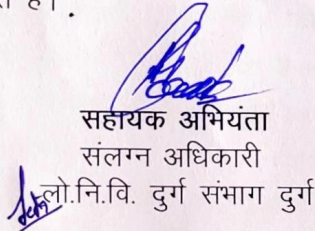 है।
सहायक अभियंता
संलग्न अधिकारी
लो.नि.वि. दुर्ग संभाग दुर्ग